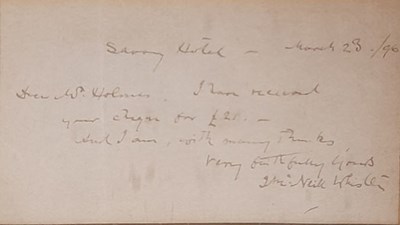 Savoy Hotel - March 23. /96
Dear Mr Holmes. I have received
your cheque for £20. -
And I am, with many thanks
Very faithfully Yours
J McNeill Whistler